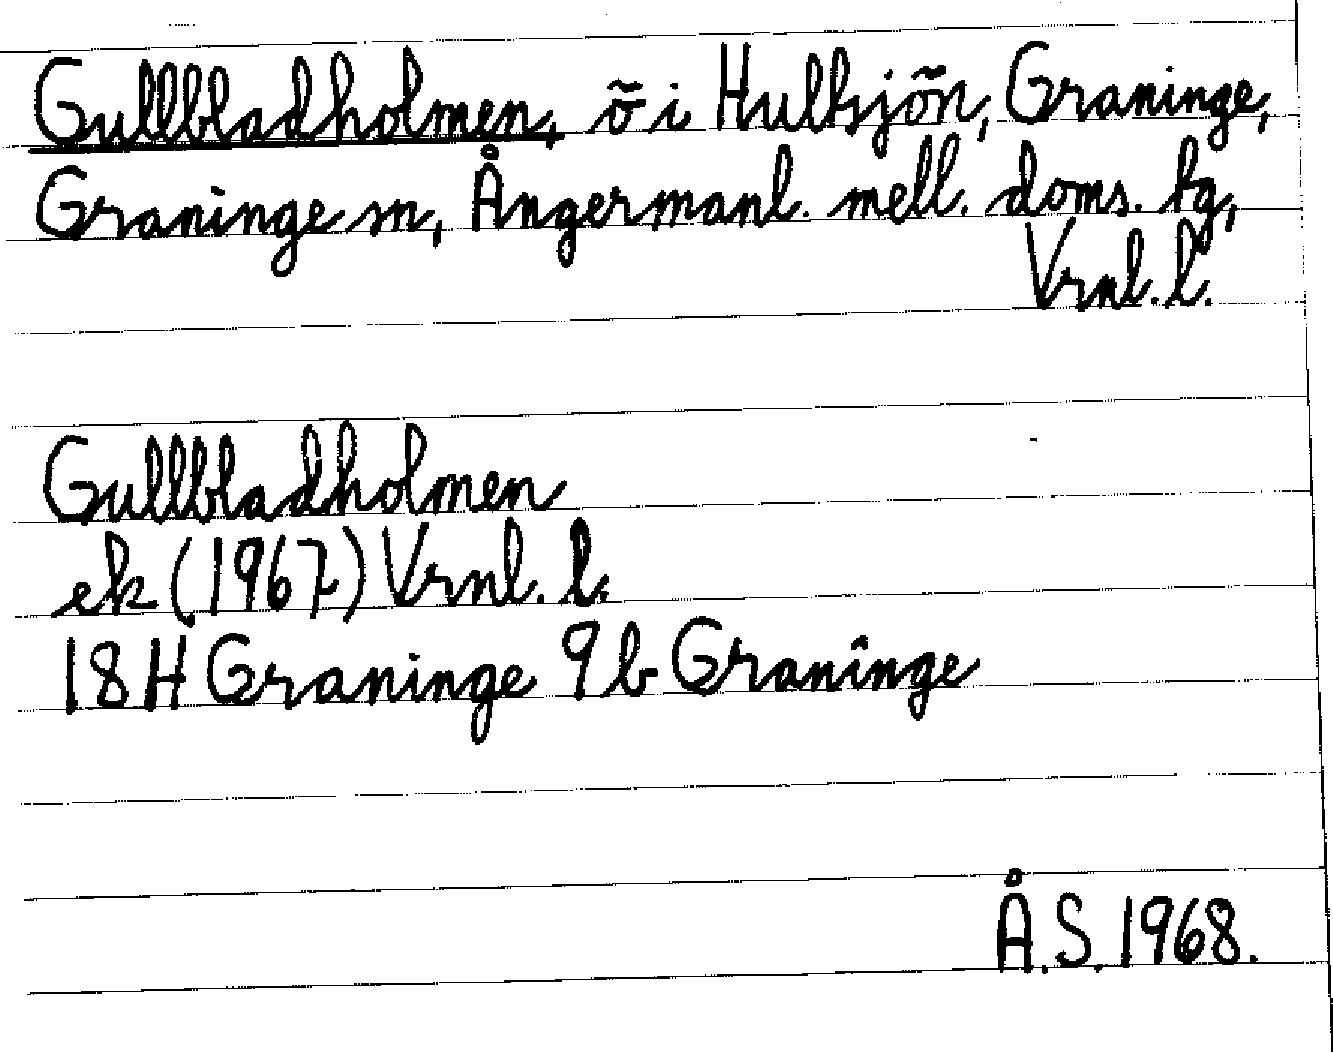 Gullbladholmen, ö i Hulksjön, Graninge,
Graninge sn, Ångermanl. mell. doms. tg,
Vrnl. l.
Gullbladholmen
ek (1967) Vrnl. l.
18H Graninge 9b Graninge
Å.S. 1968.